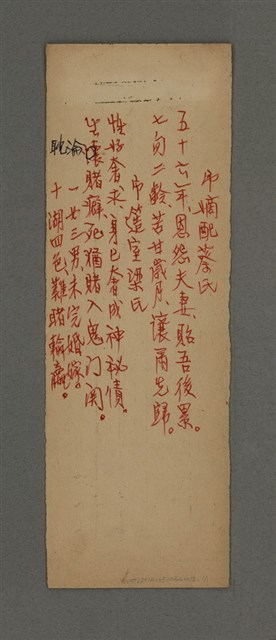 弔嫡配蔡氏
五十六年恩怨夫妻貽吾後累。
七旬二齡苦甘歲月讓爾先歸。
弔簉室梁氏
性好奢求身已奢成神秘債。
出懷賭癖死猶賭入鬼门関。
耽淪
一女三男未完婚嫁。
十湖四色難賭輸贏。